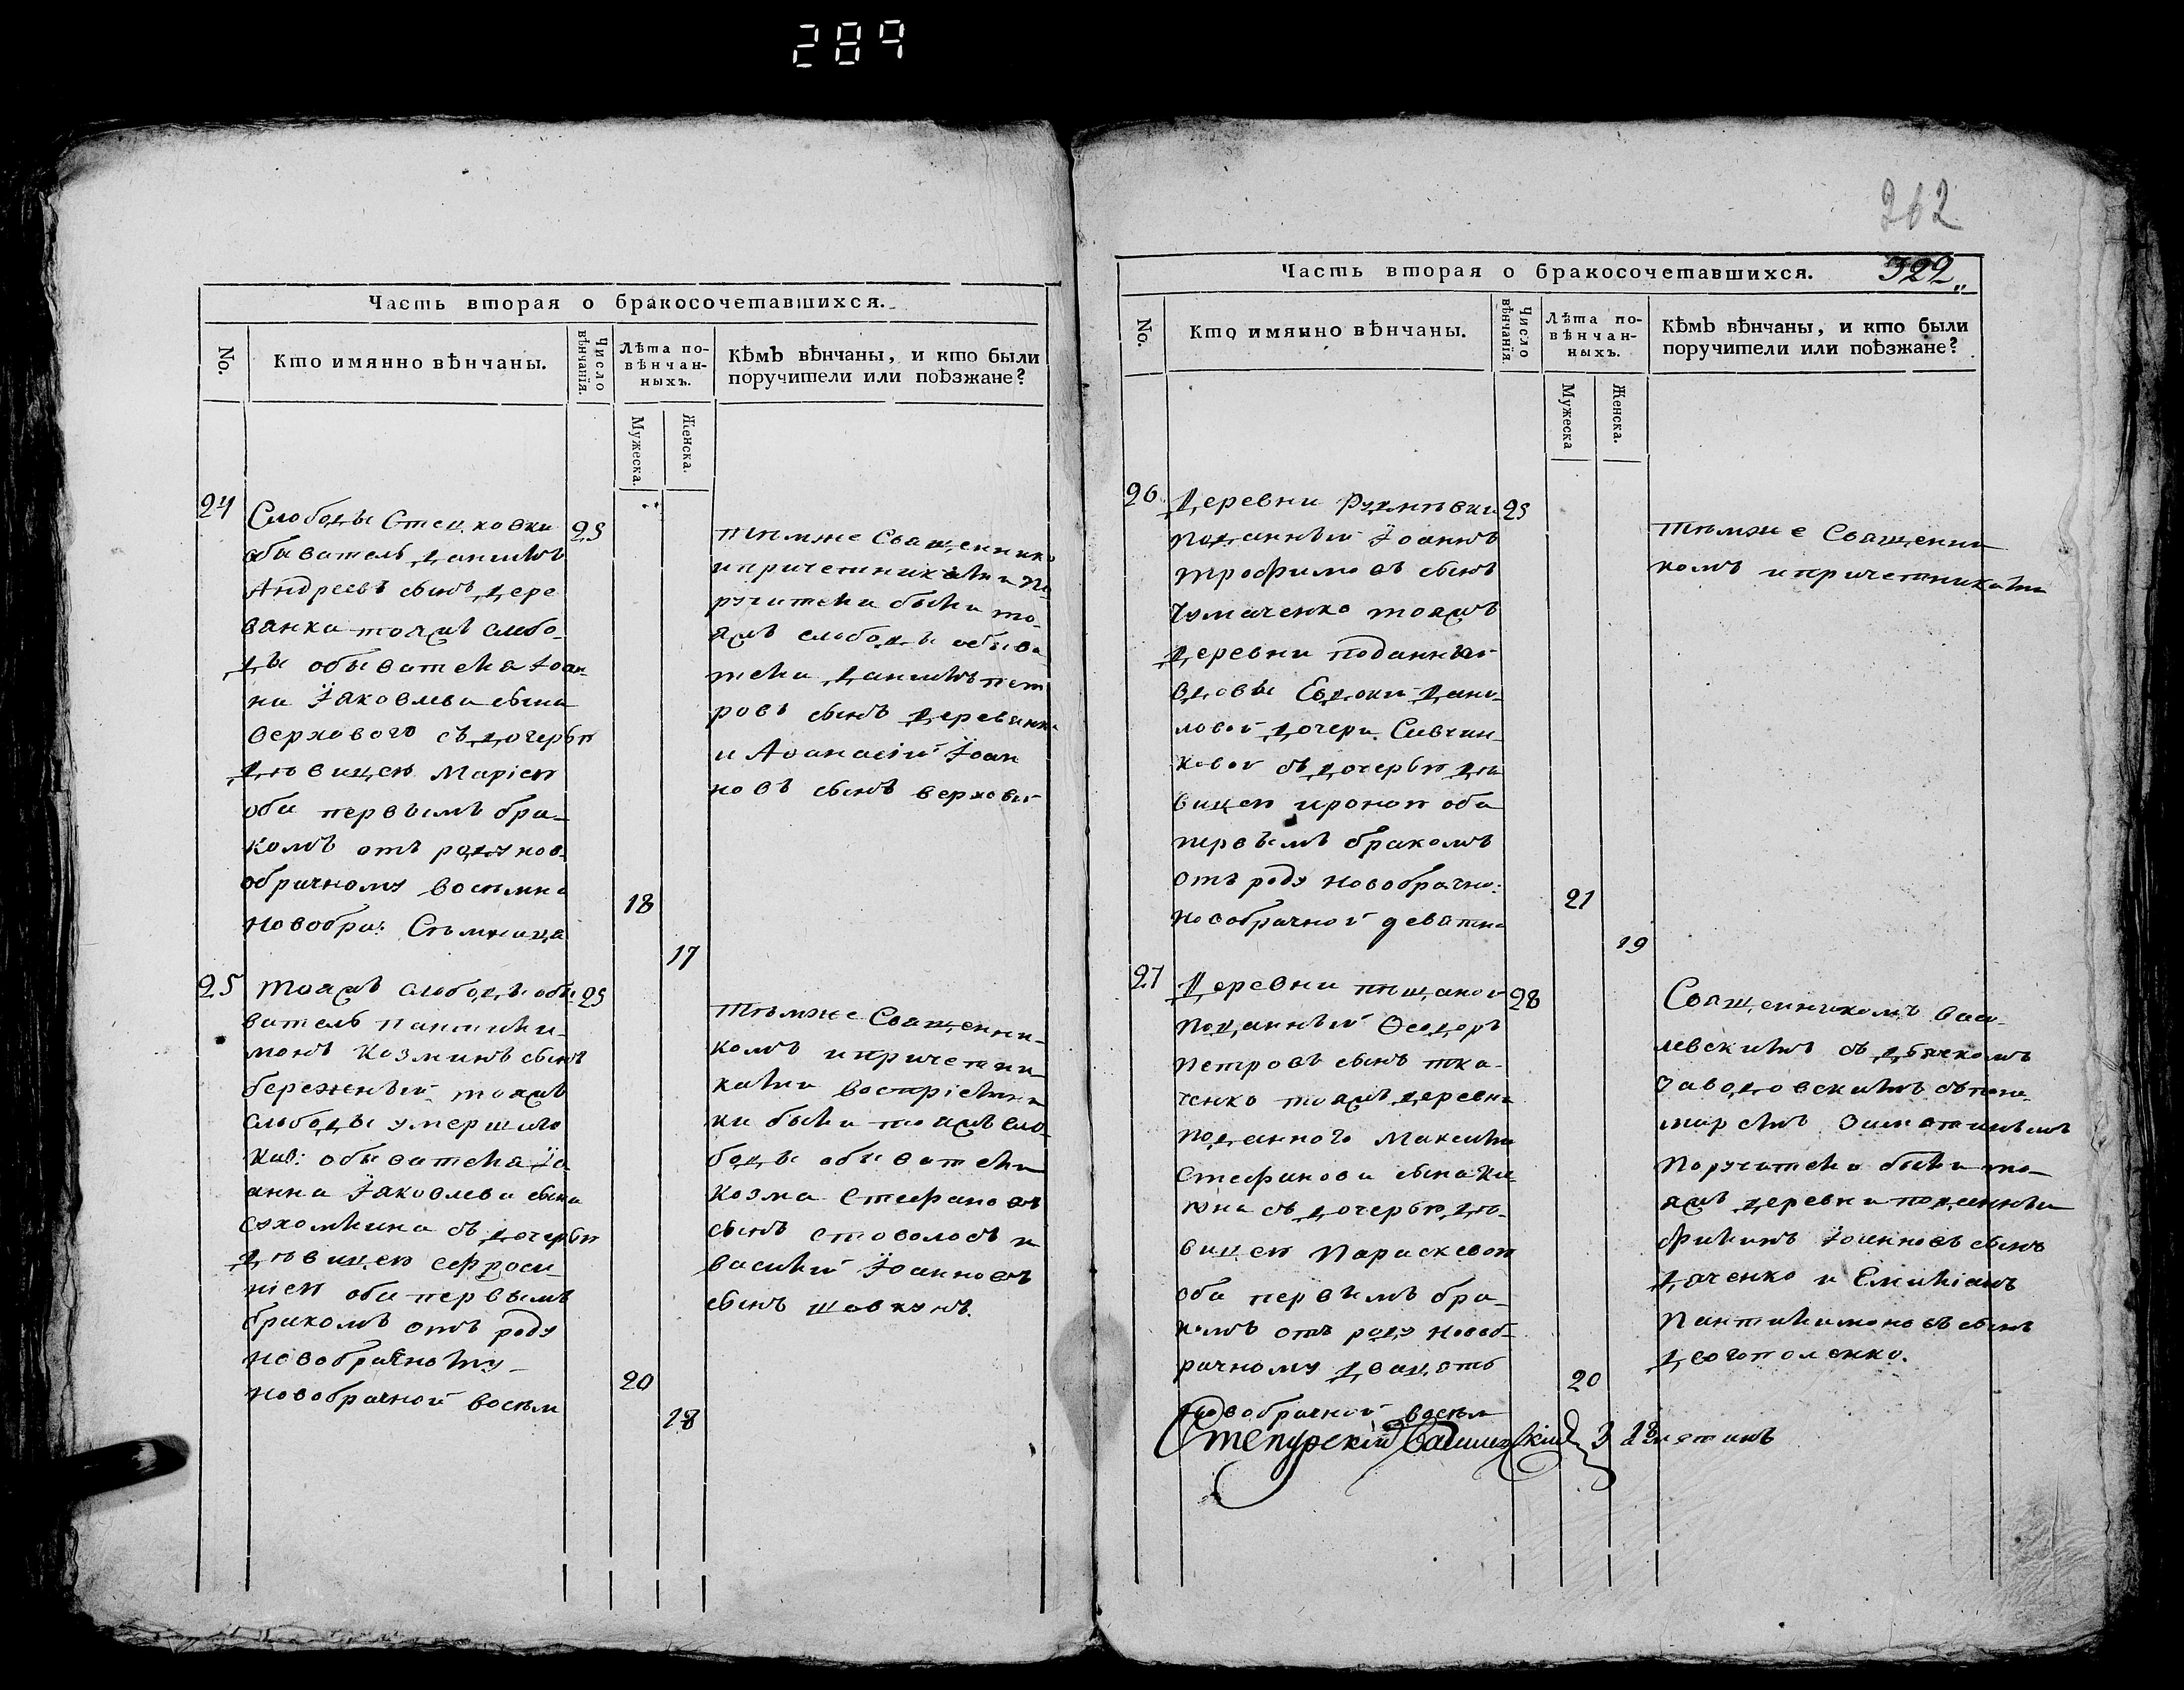 289
Часть вторая о бракосочетавшихся.
No.
Кто имянно вѣнчаны.
Число вѣнчанія.
Лѣта повѣнчанныхъ.
Мужеска.
Женска.
Кѣмъ вѣнчаны, и кто были
поручители или поѣзжане?
24
Слободы Стецковки 25
обыватель Даніилъ
Андреевъ сынъ дере
вянка тояжъ слобо-
ды обывателя Іоан-
на Іаковлева сына
Верхового съ дочерью
дѣвицею Маріею
оба первымъ бра-
комъ отъ роду нов-
обрачному восемна
18
новобра: Семнаца
17
тѣмже Священнико
и причетниками по
ручители были то-
яжъ слободы обыва-
тели Даніилъ пет
ровъ сынъ деревянка
и Аѳанасій Іоан
новъ сынъ верховый
25
тояжъ слободы обы 25
ватель пантилей-
монъ Козминъ сынъ
бережный тояжъ
слободы умершаго
обывателя Іо
анна Іаковлева сына
сухомлина съ дочерью
дѣвицею ефроси-
ніею оба первымъ
бракомъ отъ роду
новобрачному
20
новобрачной восем
18
тѣмже Священни-
комъ и причетни-
ками воспріемни-
ки были тояжъ сло-
боды обыватели
Козма Стефановъ
сынъ стоволосъ и
василій Іоанновъ
сынъ шовкунъ.
262
322
Часть вторая о бракосочетавшихся.
No.
Кто имянно вѣнчаны.
Число вѣнчанія.
Лѣта повѣнчанныхъ.
Мужеска
Женска.
Кѣмъ вѣнчаны, и кто были
поручители или поѣзжане?
26
Деревни 25
поданный Іоаннъ
трофимовъ сынъ
Чумаченко тояжъ
деревни поданной
вдовы Евдокіи Дани-
ловой дочери
ковой съ дочерью дѣ
вицею ириною оба
первымъ бракомъ
отъ роду новобрачно:
21
новобрачной девятна
19
тѣмже Священни
комъ и причетниками
27
Деревни пѣщаной 28
поданный Ѳеодоръ
Петровъ сынъ тка-
ченко тояжъ деревни
поданного Максима
Стефанова сына
съ дочерью дѣ-
вицею Параскевою
оба первымъ бра-
комъ отъ роду новоб-
рачному двацать
20
новобрачной восем
18
Священникомъ васи-
левскимъ съ дьячкомъ
Заводовскимъ съ поно-
маремъ
Поручители были то-
яжъ деревни поданныи
филипъ Іоанновъ сынъ
Дяченко и Емиліанъ
Пантилимоновъ сынъ